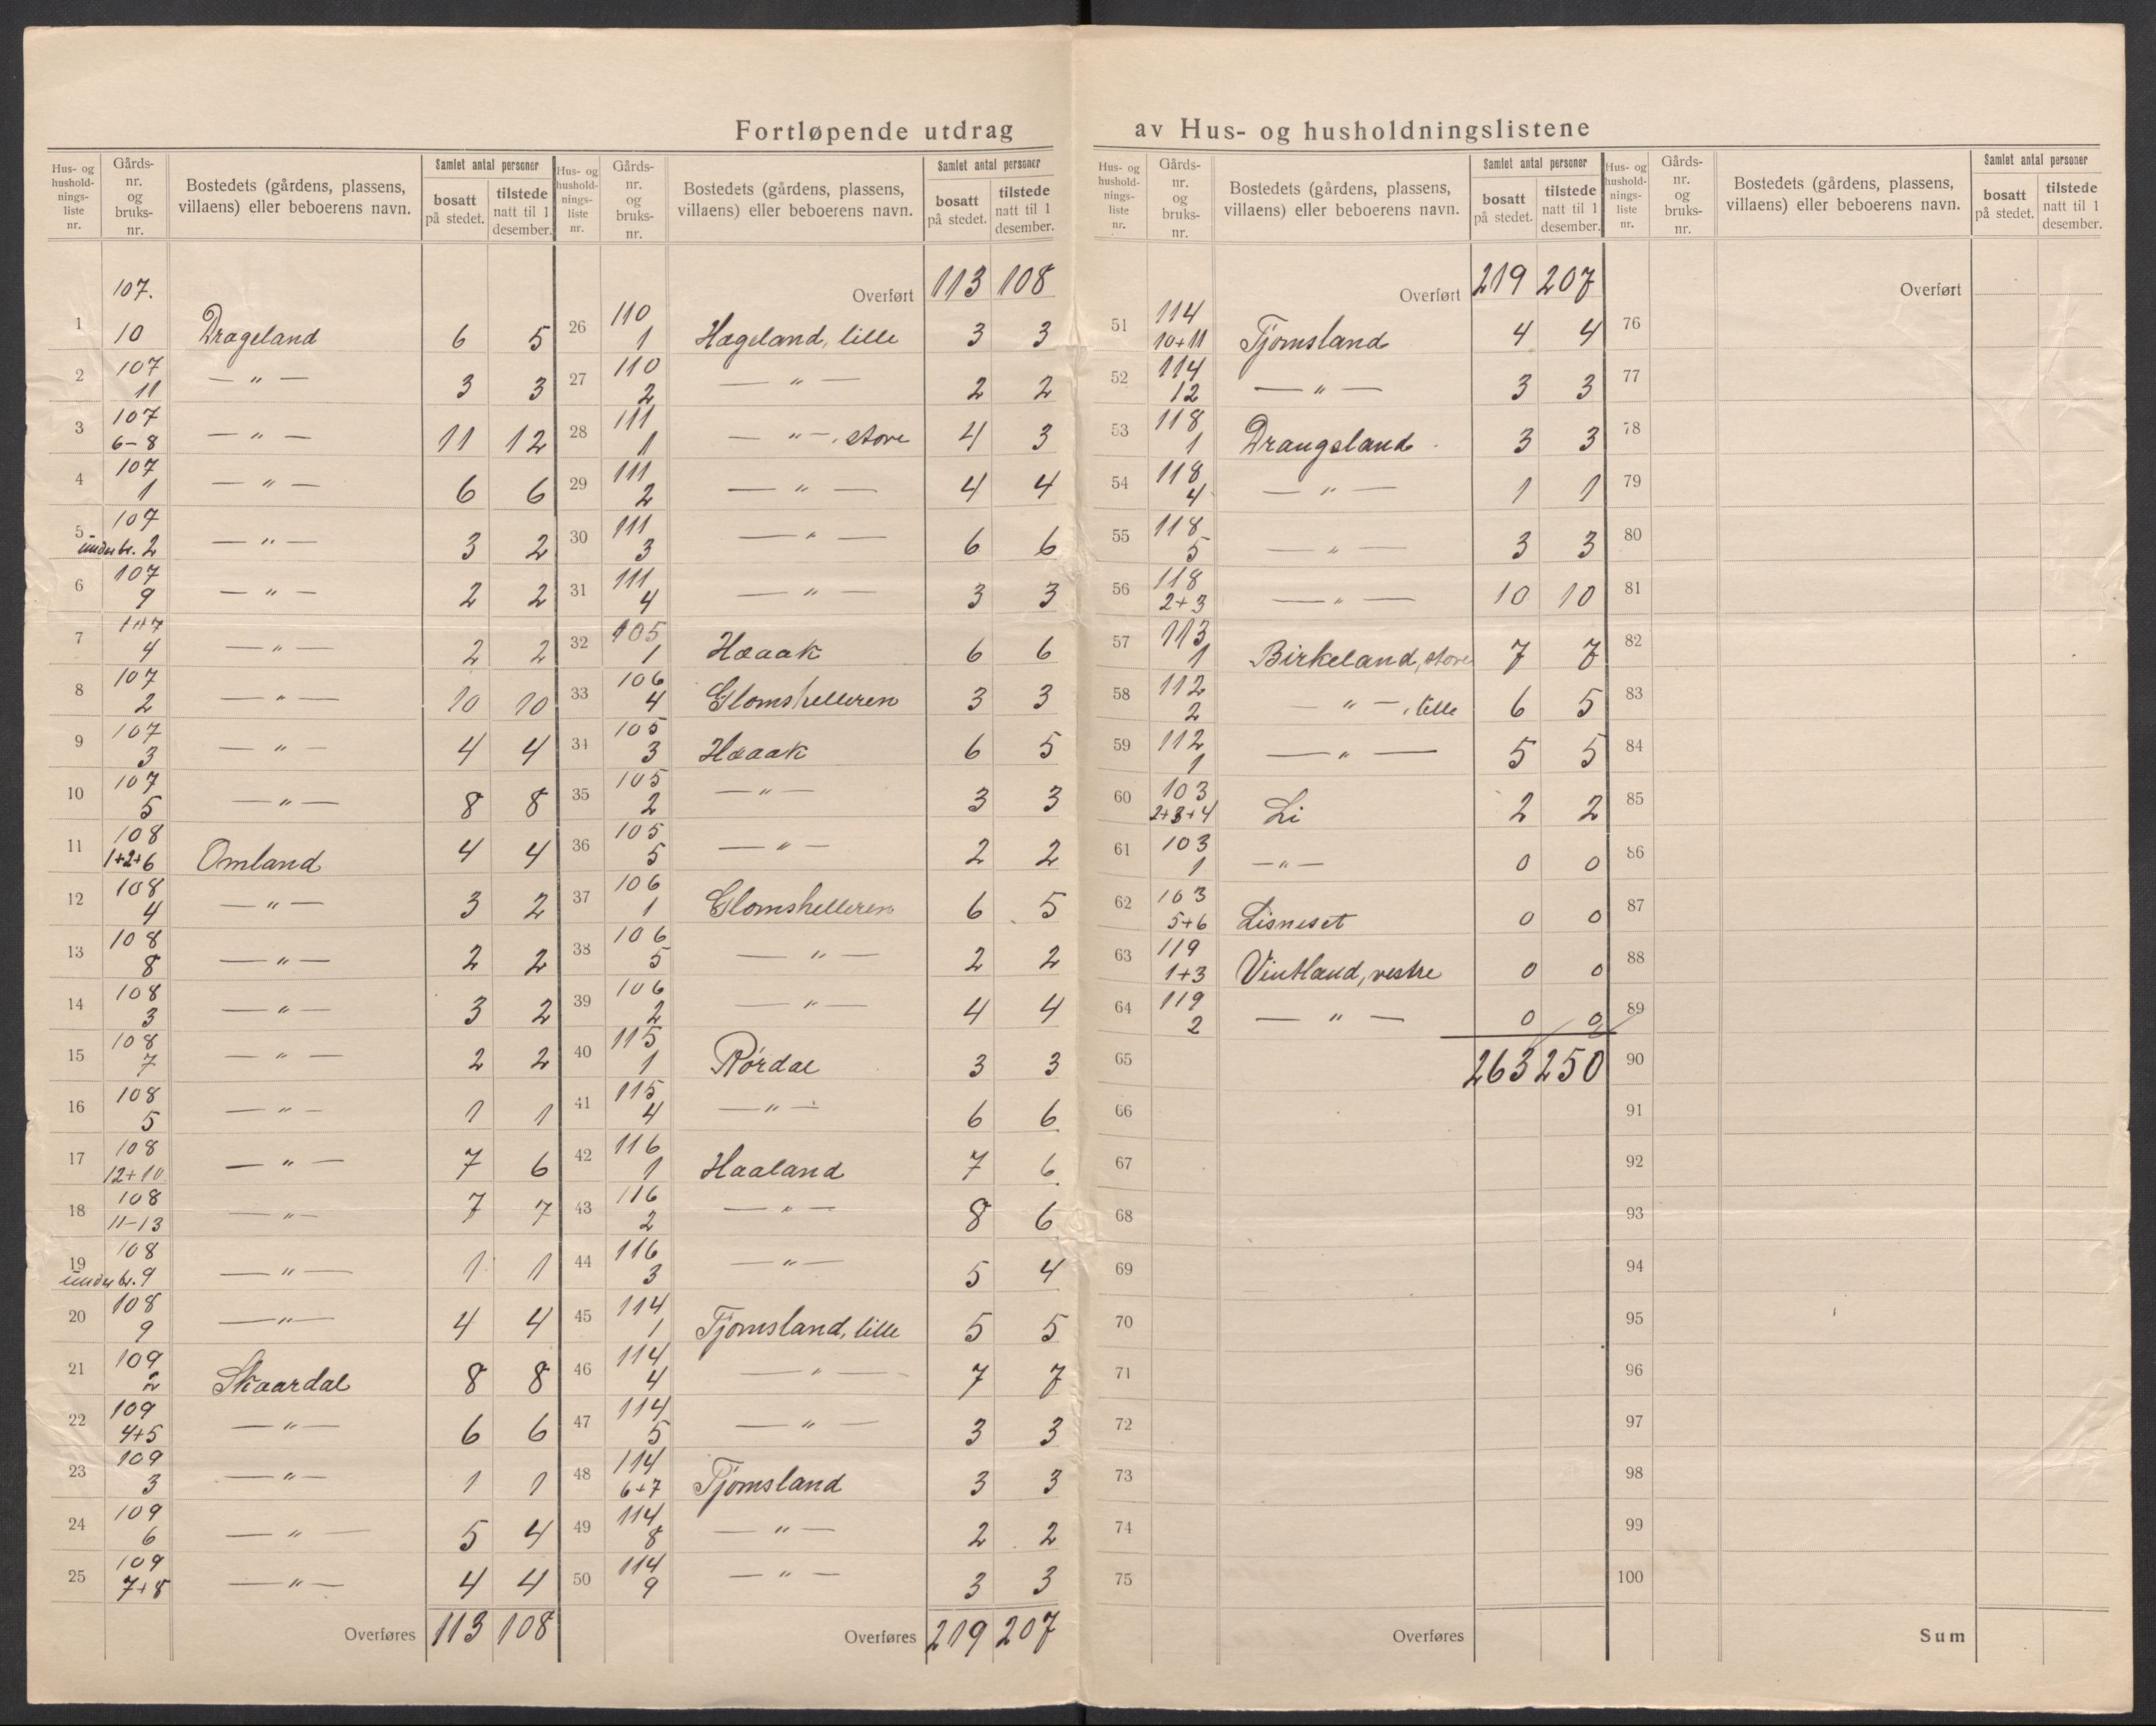 Fortløpende utdrag av Hus- og husholdningslistene
Hus- og husholdnings-liste nr. | Gårds-nr. og bruks-nr. | Bostedets (gårdens, plassens, villaens) eller beboerens navn. | Samlet antal personer bosatt på stedet. | tilstede natt til 1 desember.
1 | 107. 10 | Drageland | 6 | 5
2 | 107 11 | — " — | 3 | 3
3 | 107 6-8 | — " — | 11 | 12
4 | 107 1 | — " — | 6 | 6
5 | 107 under br. 2 | — " — | 3 | 2
6 | 107 9 | — " — | 2 | 2
7 | 107 4 | — " — | 2 | 2
8 | 107 2 | — " — | 10 | 10
9 | 107 3 | — " — | 4 | 4
10 | 107 5 | — " — | 8 | 8
11 | 108 1+2+6 | Omland | 4 | 4
12 | 108 4 | — " — | 3 | 2
13 | 108 8 | — " — | 2 | 2
14 | 108 3 | — " — | 3 | 2
15 | 108 7 | — " — | 2 | 2
16 | 108 5 | — " — | 1 | 1
17 | 108 12+10 | — " — | 7 | 6
18 | 108 11-13 | — " — | 7 | 7
19 | 108 under br. 9 | — " — | 1 | 1
20 | 108 9 | — " — | 4 | 4
21 | 109 2 | Skaardal | 8 | 8
22 | 109 4+5 | — " — | 6 | 6
23 | 109 3 | — " — | 1 | 1
24 | 109 6 | — " — | 5 | 4
25 | 109 7+8 | — " — | 4 | 4
Overføres 113 108
Hus- og husholdnings-liste nr. | Gårds-nr. og bruks-nr. | Bostedets (gårdens, plassens, villaens) eller beboerens navn. | Samlet antal personer bosatt på stedet. | tilstede natt til 1 desember.
Overført 113 108
26 | 110 1 | Hægeland, lille | 3 | 3
27 | 110 2 | — " — | 2 | 2
28 | 111 1 | — " —, store | 4 | 3
29 | 111 2 | — " — | 4 | 4
30 | 111 3 | — " — | 6 | 6
31 | 111 4 | — " — | 3 | 3
32 | 105 1 | Haaak | 6 | 6
33 | 106 4 | Glomshelleren | 3 | 3
34 | 105 3 | Haaak | 6 | 5
35 | 105 2 | — " — | 3 | 3
36 | 105 5 | — " — | 2 | 2
37 | 106 1 | Glomshelleren | 6 | 5
38 | 106 5 | — " — | 2 | 2
39 | 106 2 | — " — | 4 | 4
40 | 115 1 | Rørdal | 3 | 3
41 | 115 4 | — " — | 6 | 6
42 | 116 1 | Haaland | 7 | 6
43 | 116 2 | — " — | 8 | 6
44 | 116 3 | — " — | 5 | 4
45 | 114 1 | Tjomsland, lille | 5 | 5
46 | 114 4 | — " — | 7 | 7
47 | 114 5 | — " — | 3 | 3
48 | 114 6+7 | Tjomsland | 3 | 3
49 | 114 8 | — " — | 2 | 2
50 | 114 9 | — " — | 3 | 3
Overføres 219 207
Hus- og husholdnings-liste nr. | Gårds-nr. og bruks-nr. | Bostedets (gårdens, plassens, villaens) eller beboerens navn. | Samlet antal personer bosatt på stedet. | tilstede natt til 1 desember.
Overført 219 207
51 | 114 10+11 | Tjomsland | 4 | 4
52 | 114 12 | — " — | 3 | 3
53 | 118 1 | Drangsland | 3 | 3
54 | 118 4 | — " — | 1 | 1
55 | 118 5 | — " — | 3 | 3
56 | 118 2+3 | — " — | 10 | 10
57 | 113 1 | Birkeland, store | 7 | 7
58 | 112 2 | — " —, lille | 6 | 5
59 | 112 1 | — " — | 5 | 5
60 | 103 2+3+4 | Li | 2 | 2
61 | 103 1 | — " — | 0 | 0
62 | 103 5+6 | Lisneset | 0 | 0
63 | 119 1+3 | Vintland, vestre | 0 | 0
64 | 119 2 | — " — | 0 | 0
65 | 263 250
66
67
68
69
70
71
72
73
74
75
Overføres
Hus- og husholdnings-liste nr. | Gårds-nr. og bruks-nr. | Bostedets (gårdens, plassens, villaens) eller beboerens navn. | Samlet antal personer bosatt på stedet. | tilstede natt til 1 desember.
Overført
76
77
78
79
80
81
82
83
84
85
86
87
88
89
90
91
92
93
94
95
96
97
98
99
100
Sum